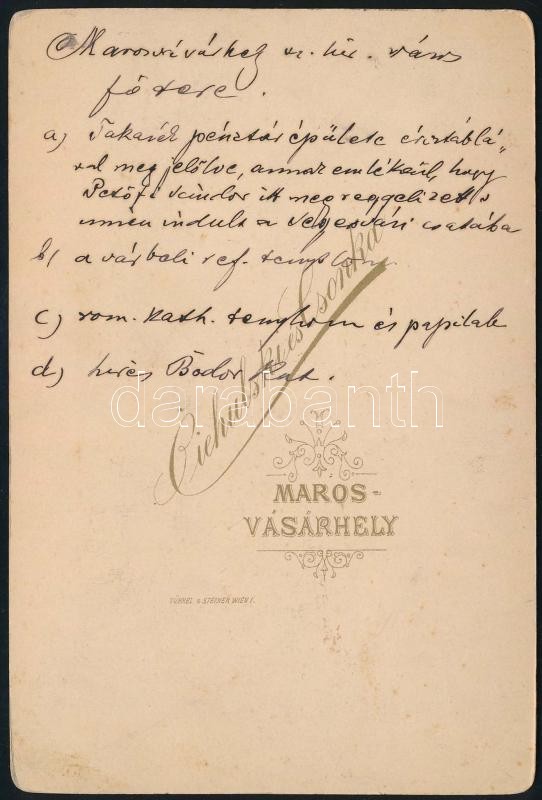 Marosvásárhely sz. kir. város
főtere.
a) Takarék pénztár épülete érctáblá-
val megjelölve, annak emlékéül, hogy
Petőfi Sándor itt megreggelizett s
innen indult a segesvári csatába
b) a várbeli ref. templom
c) rom. kath. templom és papilak
d) híres Bodor kút.
Ciehulski és Csonka
darabanth
MAROS-
VÁSÁRHELY
TÜRKEL & STEINER WIEN I.